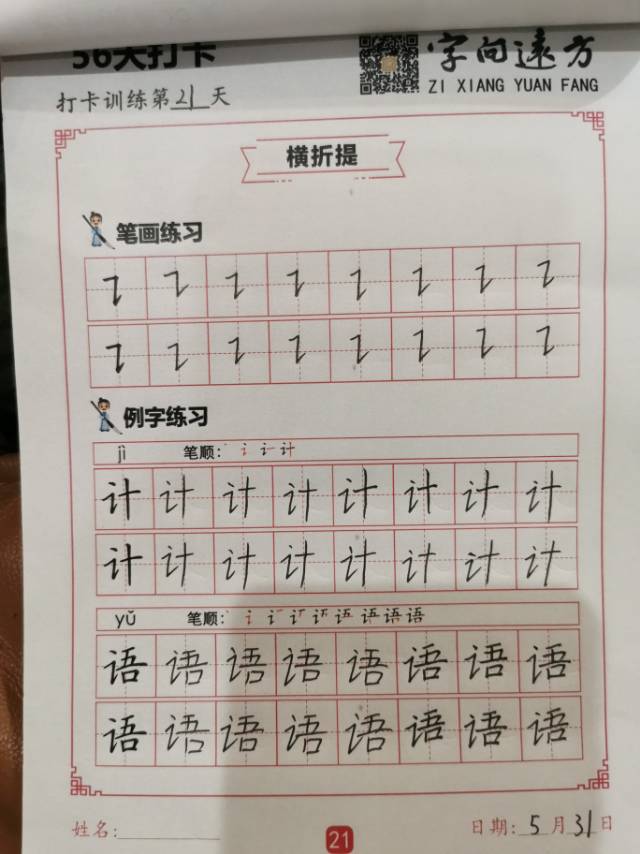 56天打卡
字向远方
ZI XIANG YUAN FANG
打卡训练第21天
横折提
笔画练习
㇊ ㇊ ㇊ ㇊ ㇊ ㇊ ㇊ ㇊
㇊ ㇊ ㇊ ㇊ ㇊ ㇊ ㇊ ㇊
例字练习
jì 笔顺: 丶 讠 计
计 计 计 计 计 计 计 计
计 计 计 计 计 计 计 计
yǔ 笔顺: 语
语 语 语 语 语 语 语 语
语 语 语 语 语 语 语 语
姓名: 21 日期: 5 月 31 日